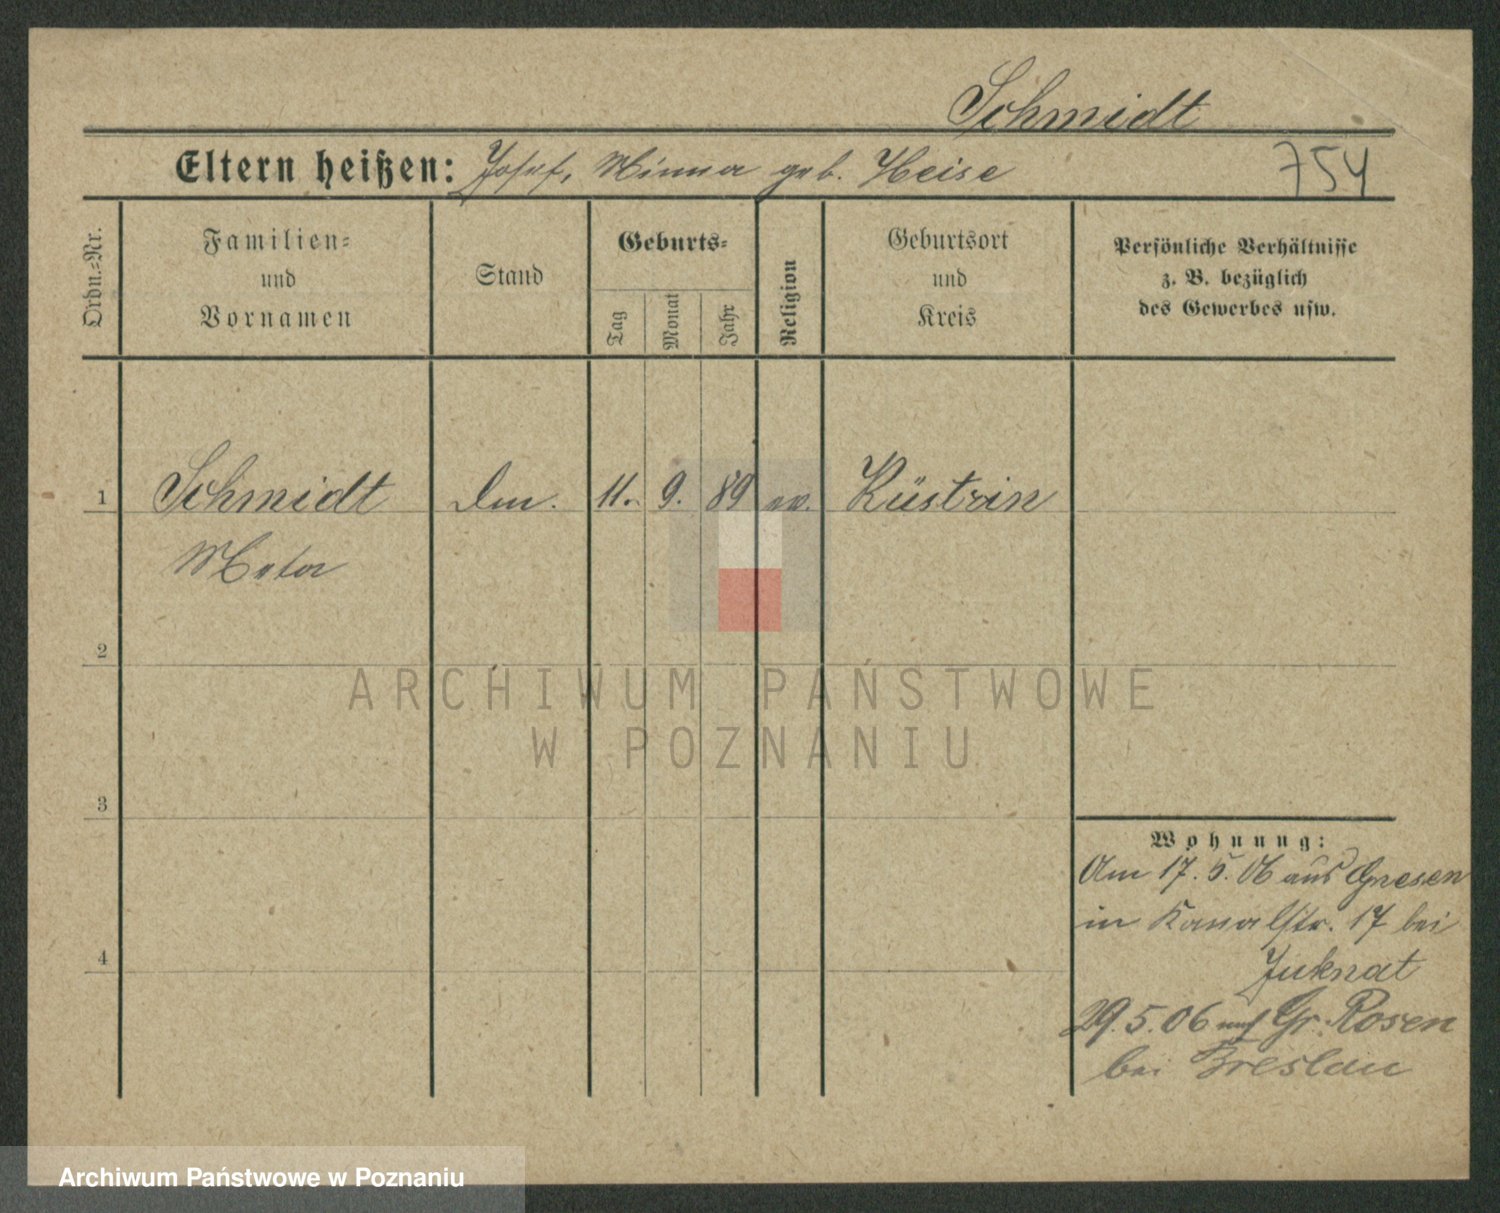 Schmidt
Eltern heißen: Josef, Minna geb. Heise
754
Ordn.=Nr.
Familien=
und
Vornamen
Stand
Geburts=
Tag
Monat
Jahr
Religion
Geburtsort
und
Kreis
Persönliche Verhältnisse
z. B. bezüglich
des Gewerbes usw.
1 Schmidt 11. 9. 89 ev. Küstrin
Meta
2
3
4
Wohnung:
Am 17. 5. 06 aus Gnesen
in Kanalstr. 17 bei
Juknat
29. 5. 06 nach Gr. Rosen
bei Breslau
ARCHIWUM PAŃSTWOWE
W POZNANIU
Archiwum Państwowe w Poznaniu